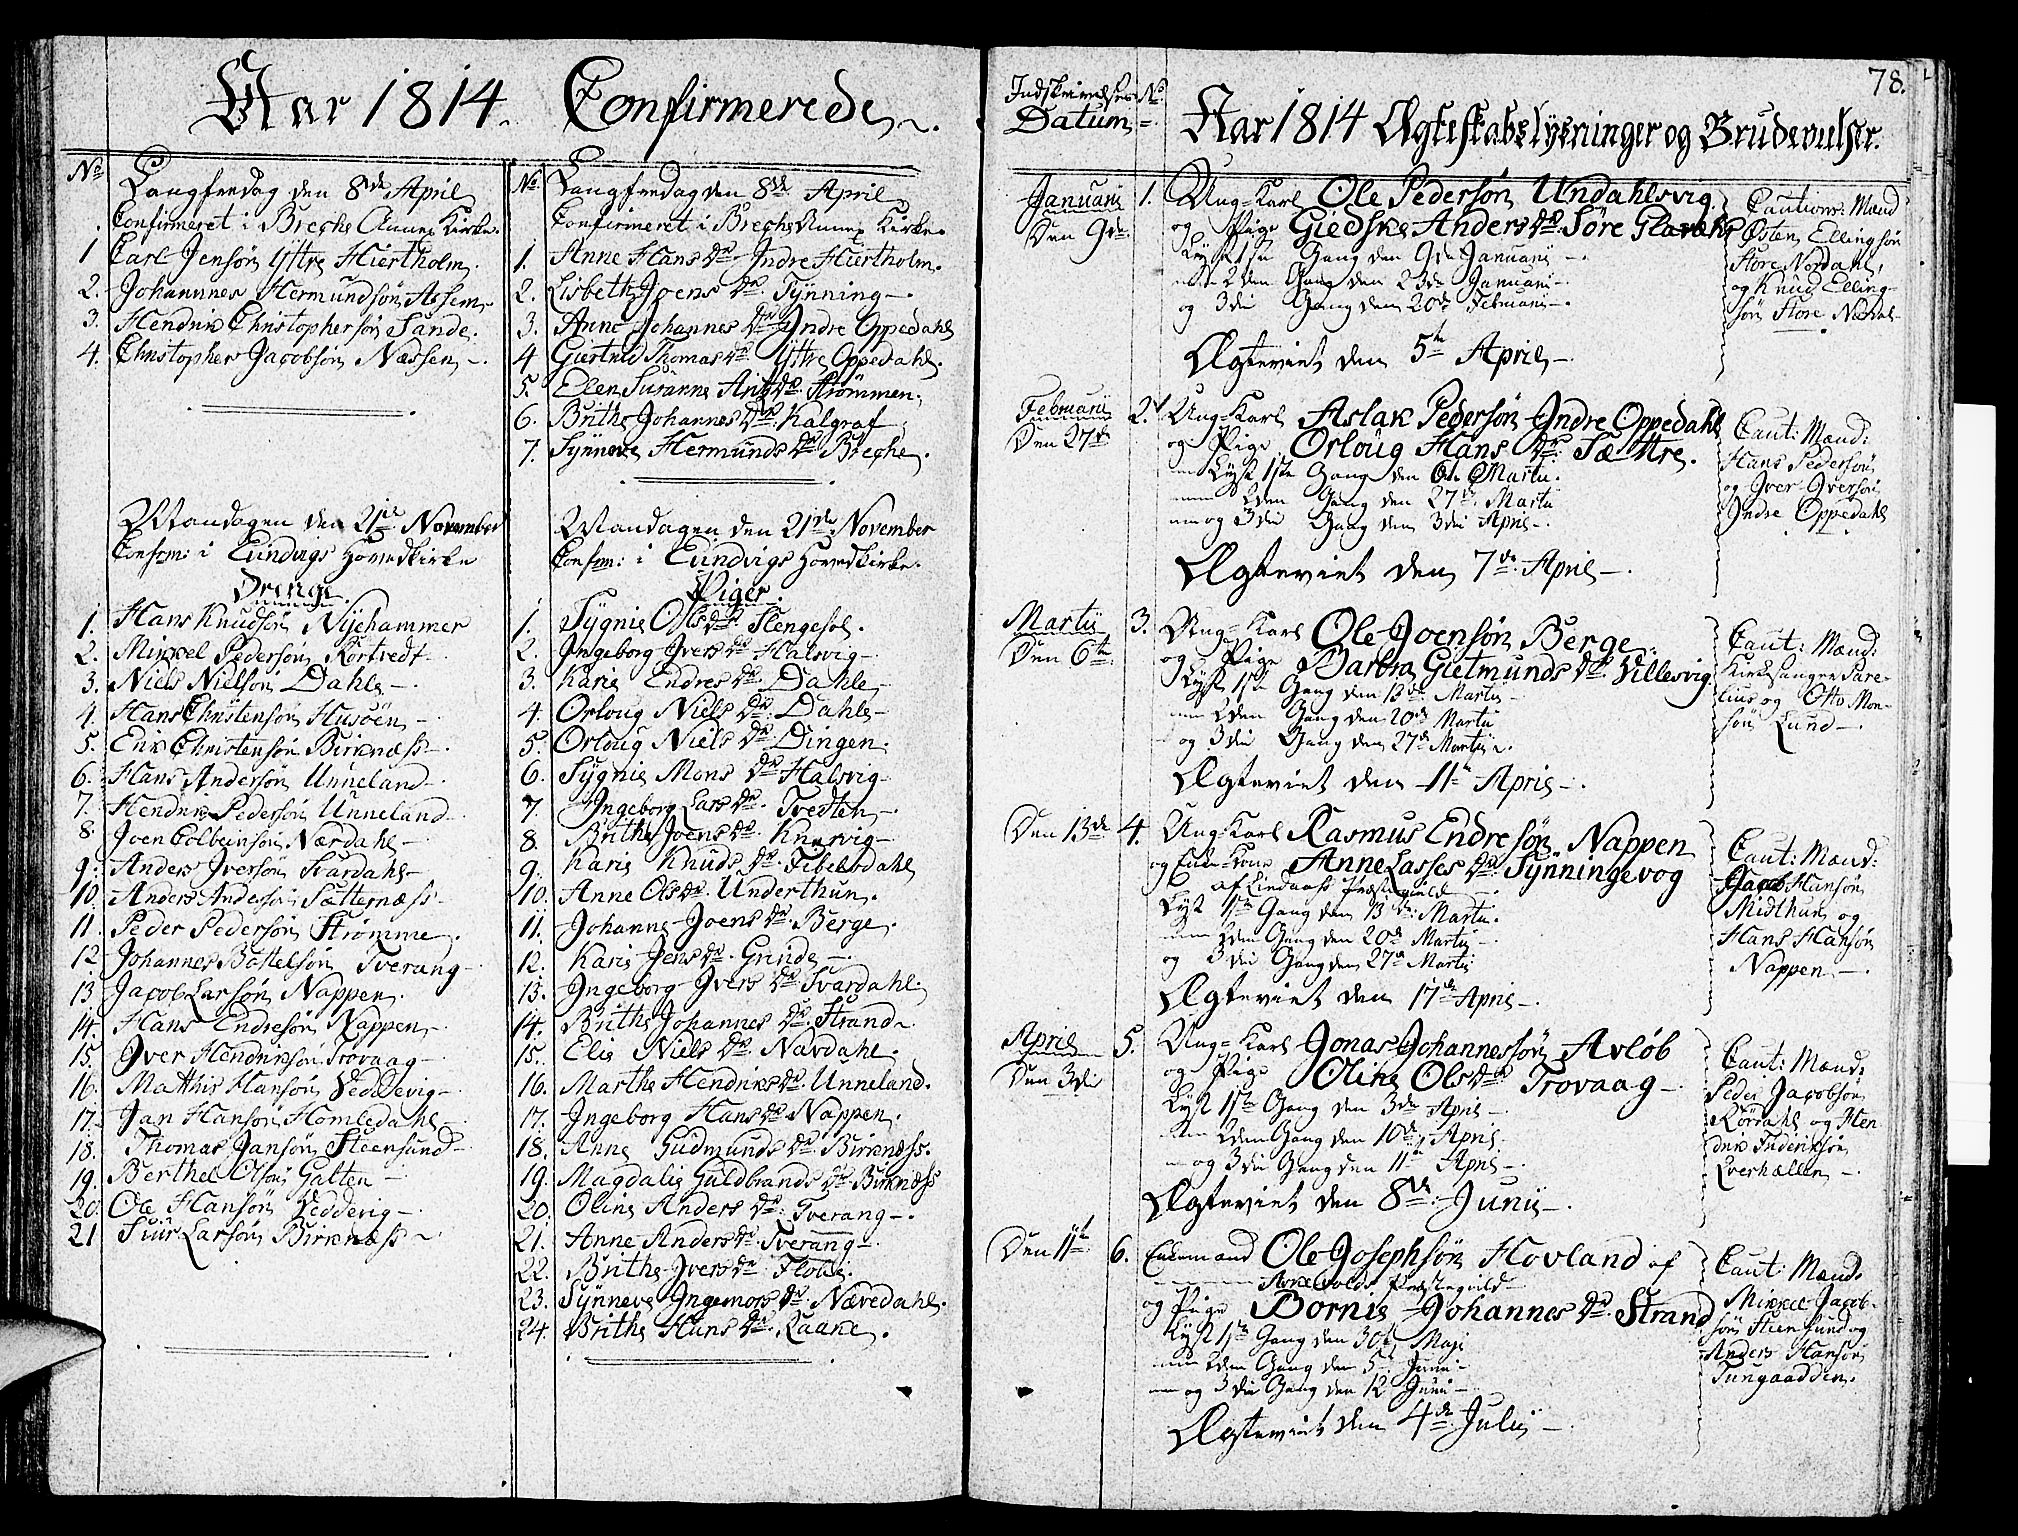 Aar 1814. Confirmerede.
No
Langfredag den 8de April
Confirmeret i Breche Annex Kirke.
1 Carl Jensön Yttre Hiertholm.
2. Johannnes Hermundsön Assem
3. Hendrik Christophersön Sande.
4. Christopher Jacobsön Næssen
Mandagen den 21de November
Confirm: i Eundvigs Hovedkirke
Drenge
1. Hans Knudsön Nÿehammer
2. Mikkel Pedersön Kortvedt
3. Niels Nielsön Dahle
4. Hans Christensön Husöen
5. Erik Christensön Birknæss
6. Hans Andersön Unneland
7. Hendrik Pedersön Unneland
8. Joen Colbeinsön Nærdahl
9. Anders Iversön Svardahl
10. Anders Andersön Sætternæss
11. Peder Pedersön Strömme.
12 Johannes Bottelsön Tverang
13 Jacob Larsön Nappen.
14. Hans Endresön Nappen
15. Iver Hendriksön Trovaag
16. Matthis Hansön Leddevig
17. Jan Hansön Homledahl
18. Thomas Jansön Steensund
19. Berthel Olsön Galten
20 Ole Hansön Leddevig
21 Siur Larsön Birknæss
No
Langfredag den 8de April
Confirmeret i Breche Annex Kirke.
1. Anne Hans Dr Indre Hiertholm.
2. Lisbeth Joens Dr Tÿnning
3. Anne Johannes Dr Indre Oppedahl
4 Giertrud Thomas Dr Yttre Oppedahl.
5. Elen Susanne Dr Strömmen
6. Brithe Johannes Dr Kalgraf
7. Sÿnneve Hermunds Dr Breche.
Mandagen den 21de November
Confirm: i Eundvigs Hovedkirke.
Piger:
1. Sÿgnie Ols Dr Slengesol.
2. Ingeborg Ivers Dr Halsvig
3. Karie Endres Dr Dahle
4. Orloug Niels Dr Dahle
5. Orloug Niels Dr Dingen.
6. Sÿgnie Mons Dr Halsvig
7. Ingeborg Lars Dr Tvedten
8. Brithe Joens Dr
9. Karie Knuds Dr
10. Anne Ols Dr Underthun.
11. Johanne Joens Dr Berge.
12. Karie Jens Dr Grinde
13. Ingeborg Ivers Dr Svardahl.
14. Brithe Johannes Dr Strand
15. Elie Niels Dr Navdahl.
16. Marthe Hendriks Dr Unneland.
17. Ingeborg Hans Dr Nappen.
18. Anne Gudmunds Dr Birknæss.
19. Magdalie Guldbrands Dr Birknæss
20. Oline Anders Dr Tverang
21. Anne Anders Dr Tverang
22. Brithe Ivers Dr
23. Sÿnneve Ingemors Dr Nævedahl.
24. Brithe Hans Dr Kaake.
78.
Indskrivelses Datum
No
Aar 1814 Ægteskabslysninger og Brudevielser.
Januarii
Den 9de
1. Ung-Karl Ole Pedersön Undahlsvig
og Pige Giedske Anders Dr Söre
Lyst 1ste Gang den 9de Januarii
2den Gang den 23de Januarii
og 3die Gang den 20de Februarii
Ægteviet den 5te April
Cautions: Mænd
Östen Ellingsön
Store Nordahl,
og Knud Elling-
sön Store Nordal
Februarii
Den 27de
2. Ung-Karl Aslak Pedersön Indre Oppedahl
og Pige Orloug Hans Dr Sættre.
Lyst 1ste Gang den 6te Martii
2den Gang den 27de Martii
og 3die Gang den 3die April
Ægteviet den 7de April
Caut: Mænd:
Hans Pedersön
og Iver Iversön
Indre Oppedahl
Martii
Den 6te
3. Ung-Karl Ole Joensön Berge
og Pige Barbra Gietmunds Dr Villesvig
Lyst 1ste Gang den 13de Martii
2den Gang den 20de Martii
og 3die Gang den 27de Martii
Ægteviet den 11te April
Caut: Mænd:
Kirkesanger Sare-
lius og Otto Mon-
sön Lund
Den 13de
4. Ung-Karl Rasmus Endresön Nappen
og Enke-Kone Anne Lasses Dr Sÿnningevog
af Lindaas Præstegield
Lyst 1ste Gang den 13de Martii.
2den Gang den 20de Martii
og 3die Gang den 27de Martii
Ægteviet den 17de April
Caut: Mænd:
Jacob Hansön
Midthun og
Hans Hansön
Nappen
April
Den 3die
5. Ung-Karl Jonas Johannessön Avlöb
og Pige Oline Ols Dr Trovaag
Lyst 1ste Gang den 3die April
2den Gang den 10de April.
og 3die Gang den 11te April
Ægteviet den 8de Junii
Caut: Mænd:
Peder Jacobsön
Rördahl og Hen
drik Frideriksön
Everhællen
Den 11te
6. Enkemand Ole Josephsön Hovland af
Præstegield
og Pige Bornie Johannes Dr Strand
Lyst 1ste Gang den 30te Maji
2den Gang den 5te Junii
og 3die Gang den 12 Junii
Ægteviet den 4de Julii
Caut: Mænd.
Mikkel Jacob-
sön Steensund og
Anders Hansön
Tungaadden.